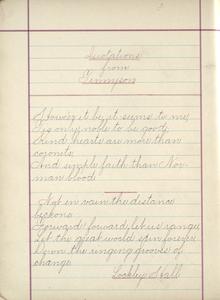 Quotations
from
Tennyson
Howe'er it be, it seems to me,
'Tis only noble to be good;
Kind hearts are more than
coronets
And simple faith than Nor-
man blood
Not in vain the distance
beckons
Forward forward, let us range
Let the great world spin forever
Down the ringing grooves of
change
Locksley Hall